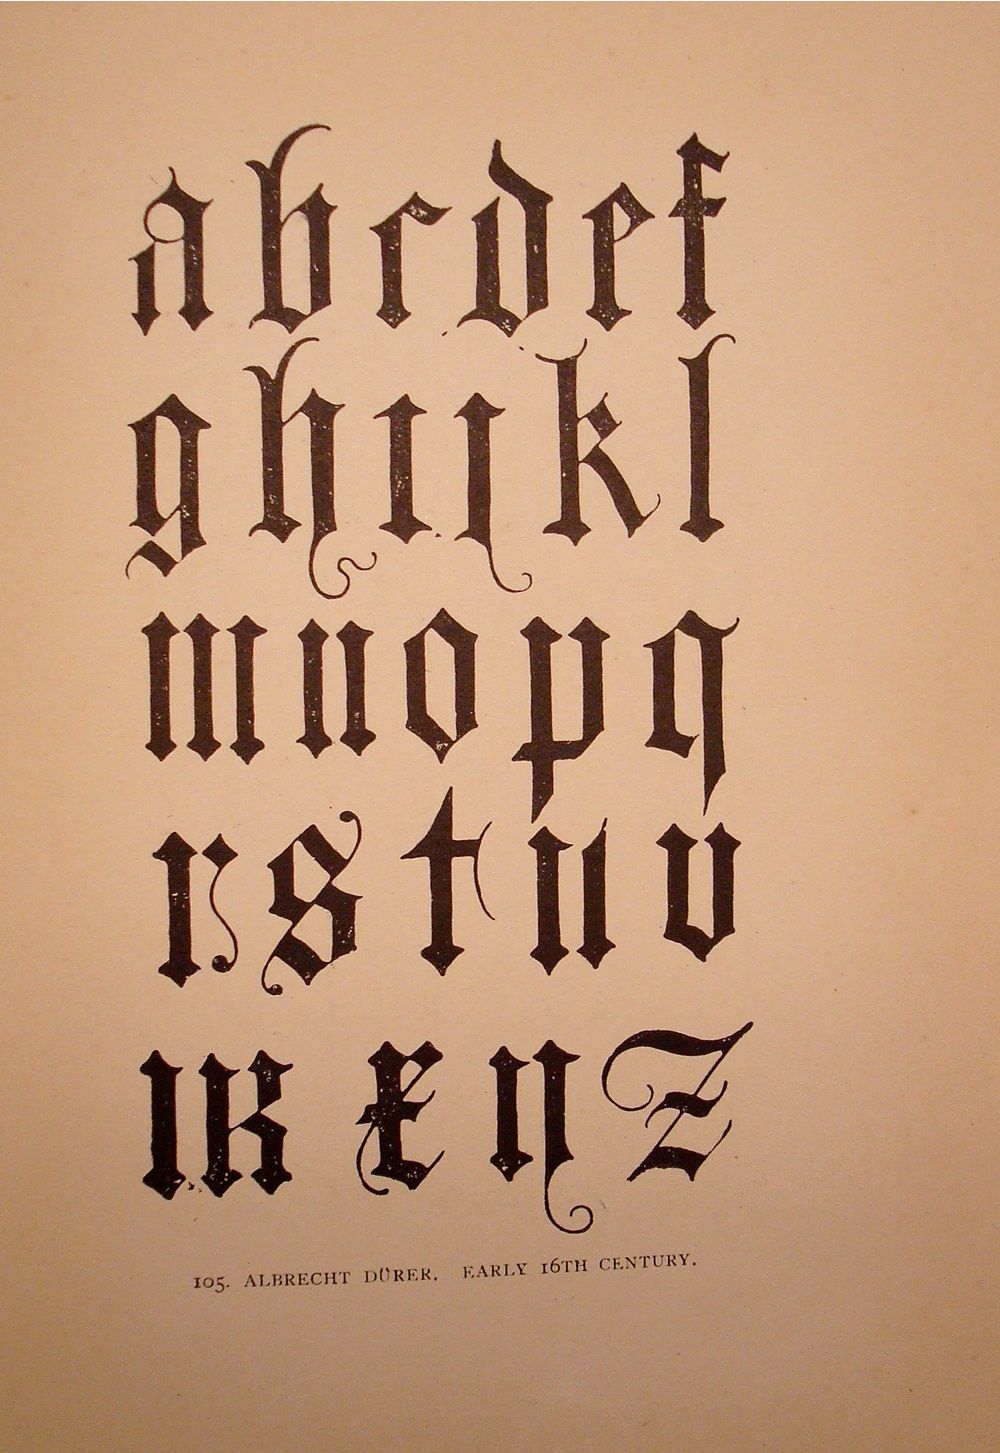 abcdef
ghijkl
mnopq
rstuv
wxyz
105. ALBRECHT DÜRER. EARLY 16TH CENTURY.